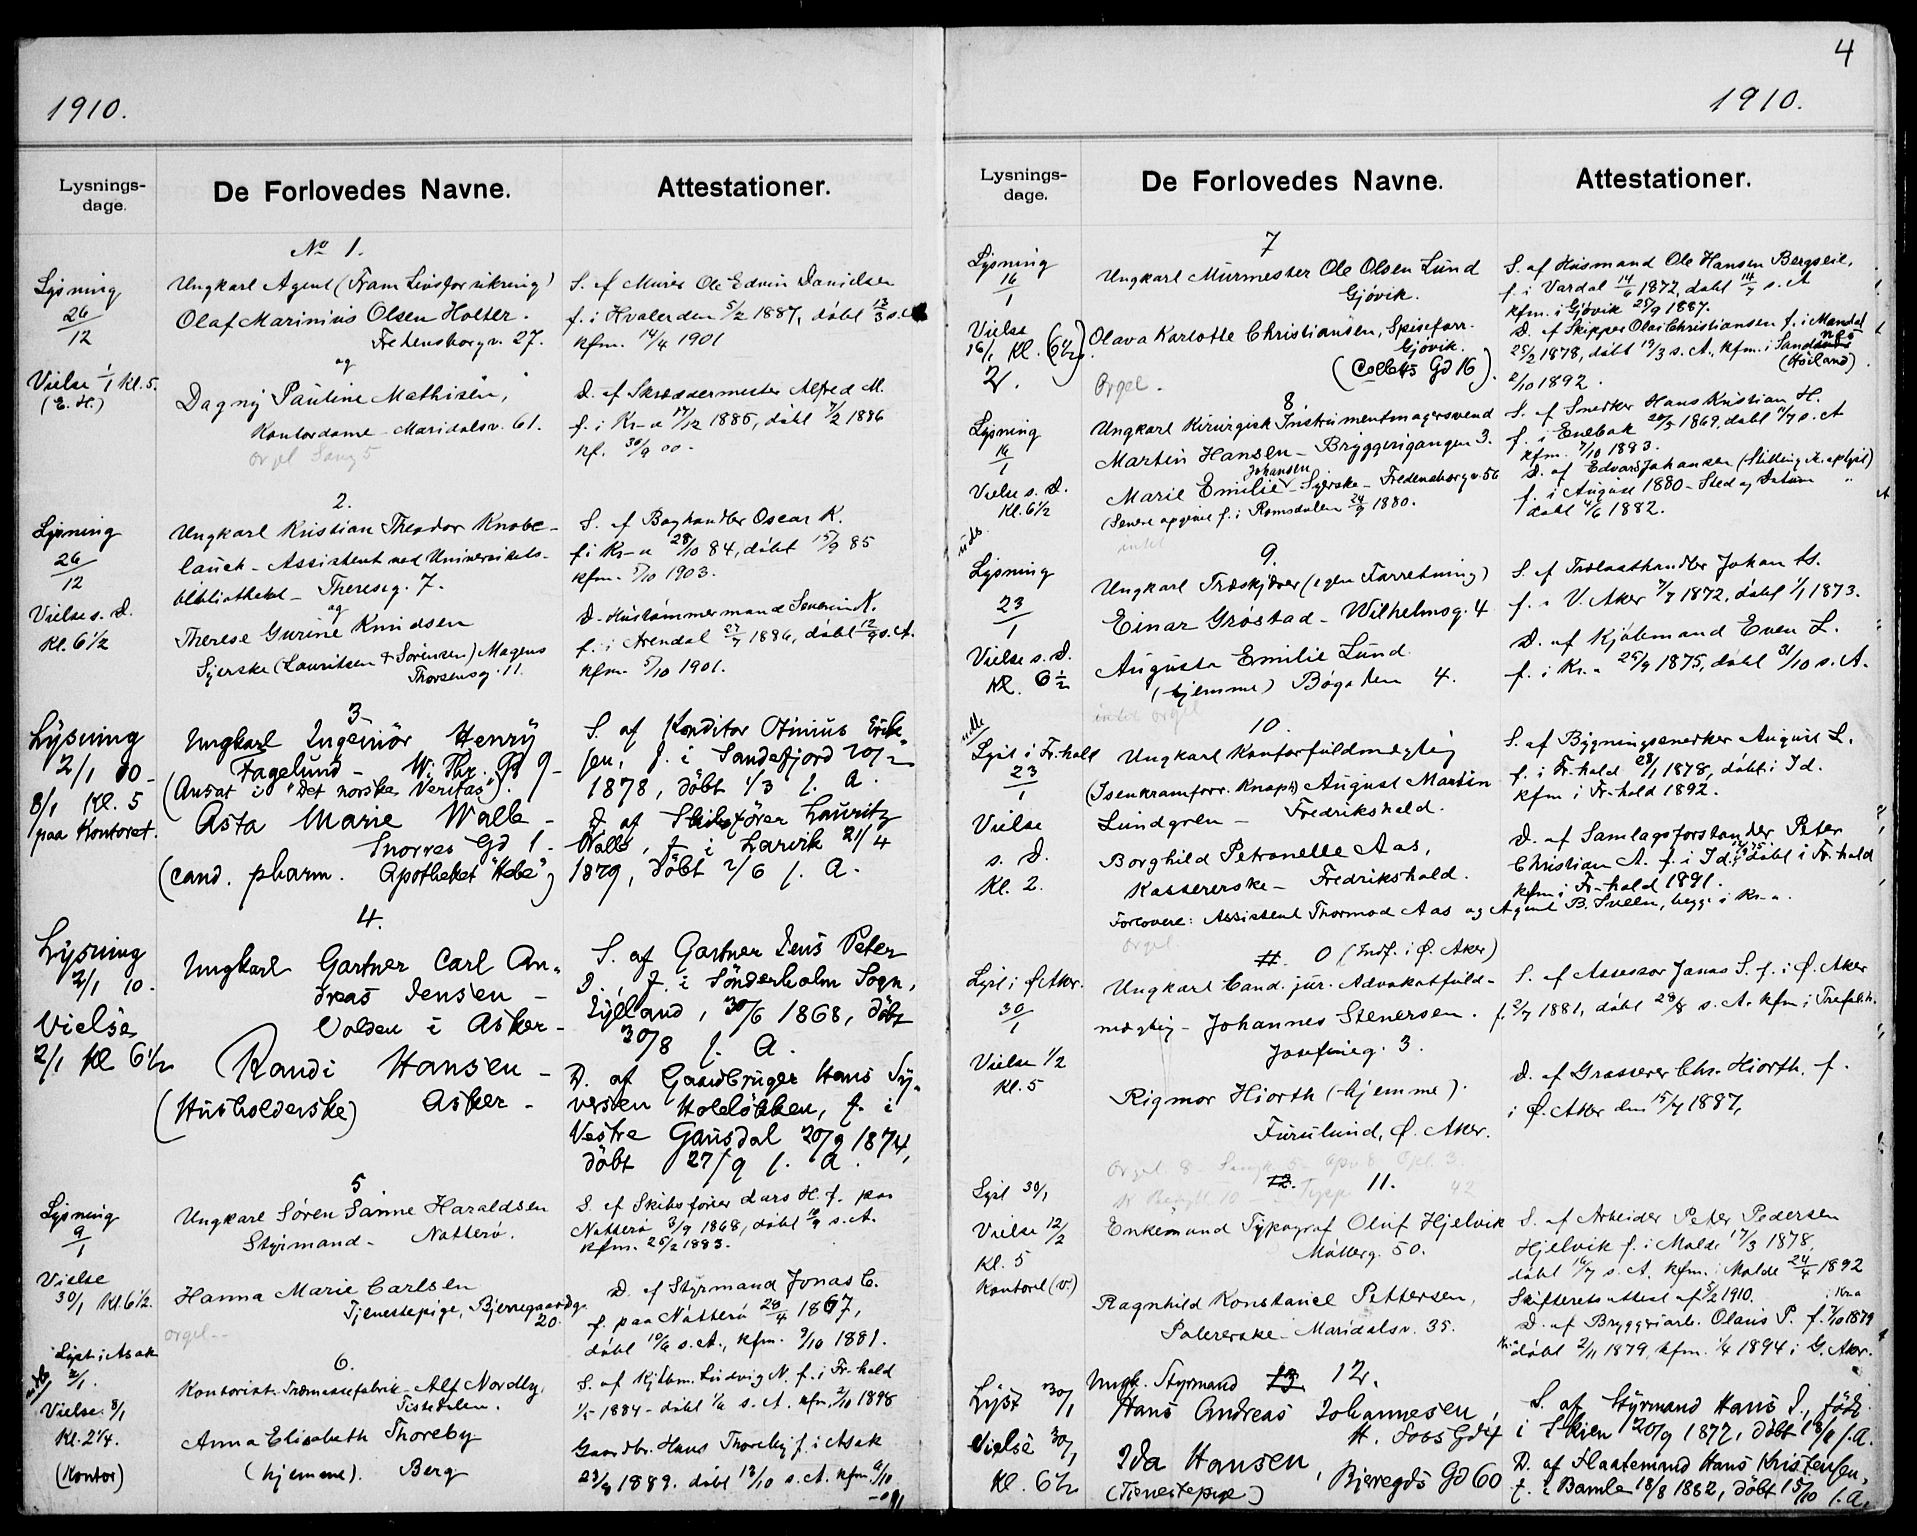 4
1910.
Lysnings-
dage.
De Forlovedes Navne.
Attestationer.
No 1.
Lysning
26
12
Vielse 1/1 Kl. 5.
(E. H.)
Ungkarl Agent (Fram Livsforsikring)
Olaf Marinius Olsen Holter.
Fredensborgv. 27.
og
Dagny Pauline Mathisen,
Kontordame - Maridalsv. 61.
orgel Sang 5
S. af Murer Ole Edvin Danielsen
f. i Hvaler den 5/2 1887, døbt 13/3 s. A
kfm. 14/4 1901
D. af Skræddermester Alfred M.
f. i Kr-a 17/12 1885, døbt 7/2 1886
kf. 30/9 00.
2.
Lysning
26
12
Vielse s. D.
Kl. 6 1/2
Ungkarl Kristian Theodor Knobe-
lauch - Assistent ved Universitets-
bibliotheket - Theresesg. 7.
og
Therese Gurine Knudsen
Syerske (Lauritsen & Sørensen) Magnus
Thorsensg. 11.
S. af Boghandler Oscar K.
f. i Kr-a 28/10 84, døbt 15/9 85
kfm. 5/10 1903.
D. Hustømmermand Severin K.
f. i Arendal 27/7 1886, døbt 12/9 s. A.
kfm. 5/10 1901.
3
Lysning
2/1 10 -
8/1 Kl. 5
paa Kontoret.
Ungkarl Ingeniør Henry
Fagelund - W. Thr. Gd 9 -
(Ansat i "Det norske Veritas").
Asta Marie Walle -
Snorres Gd 1 -
(cand. pharm. Apotheket "Hebe")
S. af Konditor Otinius Erik-
sen, f. i Sandefjord 20/2
1878, døbt 1/3 s. A.
D. af Skibsfører Lauritz
Walle, f. i Larvik 21/4
1879, døbt 2/6 s. A.
4.
Lysning
2/1 10.
Vielse
2/1 Kl 6 1/2
Ungkarl Gartner Carl An-
dreas Jensen -
Volden i Asker -
Randi Hansen -
(Husholderske) Asker -
S. af Gartner Jens Peter
D., f. i Sönderholm Sogn,
Jylland, 30/6 1868, døbt
30/8 s. A.
D. af Gaardbruger Hans Sy-
versen Holelökken, f. i
Vestre Gausdal 20/9 1874,
døbt 27/9 s. A.
5
Lysning
9
1
Vielse
30/1 Kl. 6 1/2.
Ungkarl Søren Sanne Haraldsen
Styrmand - Nøtterø.
Hanna Marie Carlsen
Tjenestepige, Bjerregaardsg.
20.
orgel --
S. af Skibsfører Lars H. f. paa
Nøtterø 3/9 1868, døbt 10/9 s. A.
kfm. 25/2 1883.
D. af Styrmand Jonas C.
f. paa Nøtterø 28/4 1867,
døbt 10/6 s. A., kfm. 9/10 1881.
6.
Lyst i Asak
2/1.
Vielse. 8/1
Kl. 2 1/4.
(Kontor)
Kontorist. Træmassefabrik - Alf Nordby,
Tistedalen.
Anna Elisabeth Thoreby
(hjemme). Berg
S. af Kjøbm. Ludvig N. f. i Fr-hald
1/5 1884 - døbt 1/6 s. A. kfm. 2/10 1898
Gaardbr. Hans Thoreby f. i Asak
23/8 1889. døbt 13/10 s. A. kfm.
1910.
Lysnings-
dage.
De Forlovedes Navne.
Attestationer.
7
Lysning
16
1
Vielse
16/1 Kl. (6 1/2)
Ungkarl Murmester Ole Olsen Lund
Gjøvik.
Olava Karlotte Christiansen, Spiseforr.
Gjøvik.
(Colletts Gd 16).
Orgel.
S. af Husmand Ole Hansen Bergseie,
f. i Vardal 14/6 1872, døbt 14/7 s. A
kfm. i Gjøvik 25/9 1887.
D. af Skipper Olai Christiansen f. i Mandal
25/2 1878, døbt 19/3 s. A., kfm. i Sandnes
(Høiland).
2/10 1892.
8.
Lysning
16
1
Vielse s. D.
Kl. 6 1/2
Ungkarl Kirurgisk Instrumentmagersvend
Martin Hansen - Bryggerigangen 3.
Johansen
Marie Emilie - Syerske - Fredensborgv. 56
(Senere opgivet f. i Romsdalen 24/9 1880.
intet
S. af Snedker Hans Kristian H.
f. i Enebak 20/5 1869, døbt 11/7 s. A
kfm. 7/10 1883.
D. af Edvard Johansen (Stilling ik. oplyst)
f. i August 1880 - Sted og Datum "
døbt 4/6 1882.
9.
udb
Lysning
23
1
Vielse s. D.
Kl. 6 1/2
Ungkarl Træskjærer (egen Forretning)
Einar Grøstad - Wilhelmsg. 4
Augusta Emilie Lund
(hjemme) Bøgaten 4.
intet orgel
S. af Trælasthandler Johan G.
f. i V. Aker 7/7 1872, døbt 1/1 1873.
D. af Kjøbmand Even L.
f. i Kr. a 25/9 1875, døbt 31/10 s. A.
10.
Lyst i Fr.hald
23
1
Vielse
s. D.
Kl. 2.
Ungkarl Kontorfuldmægtig
(Isenkramforr. Knoph) August Martin
Lundgren - Fredrikshald.
Borghild Petronelle Aas,
Kassererske - Fredrikshald.
Forlovere: Assistent Thormod Aas og Agent B. Sveen, begge i Kr-a.
Orgel.
S. af Bygningssnedker August L.
f. i Fr-hald 28/1 1878, døbt i Id.
kfm i Fr-hald 1892.
D. af Samlagsforstander Peter
Christian A. f. i Id, døbt i Fr-hald
kfm i Fr-hald 1891.
11. 0 (Indf. i Ø. Aker)
Lyst i Ø. Aker.
30
1
Vielse 1/2
Kl. 5
Ungkarl Cand. jur. Advokatfuld-
mægtig - Johannes Stenersen.
Josefineg. 3.
Rigmor Hiorth (hjemme).
Furulund, Ø. Aker.
S. af Assessor Jonas S. f. i Ø. Aker
f. 2/7 1881, døbt 28/8 s. A. kfm i Trefoldh.
D. af Grosserer Chr. Hiorth, f.
i Ø. Aker den 15/7 1887,
12. 11.
Lyst 30/1
Vielse 12/2
Kl. 5
Kontoret (v.)
Enkemand Typograf Oluf Hjelvik
Møllerg. 50.
Ragnhild Konstance Pettersen,
Polererske - Maridalsv. 35.
S. af Arbeider Peter Pedersen
Hjelvik f. i Molde 17/3 1878,
døbt 14/7 s. A. kfm. i Molde 24/4 1892
Skifteretsattest af 5/2 1910.
D. af Bryggeriarb. Olaus P. f. 7/10 1879
døbt 2/11 1879, kfm. 1/4 1894 i G. Aker.
13 12.
Lyst 30/1
Vielse 30/1
Kl. 6 1/2
Ungk. Styrmand
Hans Andreas Johannesen,
Ida Hansen, Bjeregds Gd 60
(Tienestepige)
S. af Styrmand Hans J., född
i Skien 20/9 1877, døbt 18/11 s. A.
D. af Flaatemand Hans Kristensen,
f. i Bamle 18/8 1882, døbt 15/10 s. A.